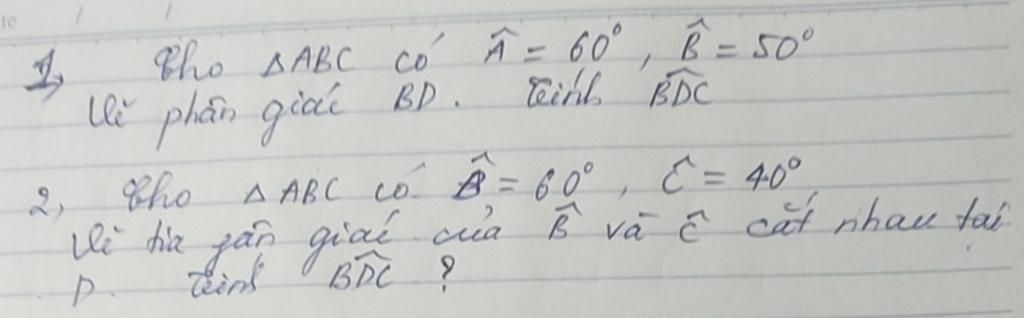 1, Cho △ABC có Â = 60°, B̂ = 50°
Vẽ phân giác BD. Tính BDC
2, Cho △ABC có B̂ = 60°, Ĉ = 40°
Vẽ tia phân giác của B̂ và Ĉ cắt nhau tại
D. Tính BDC ?